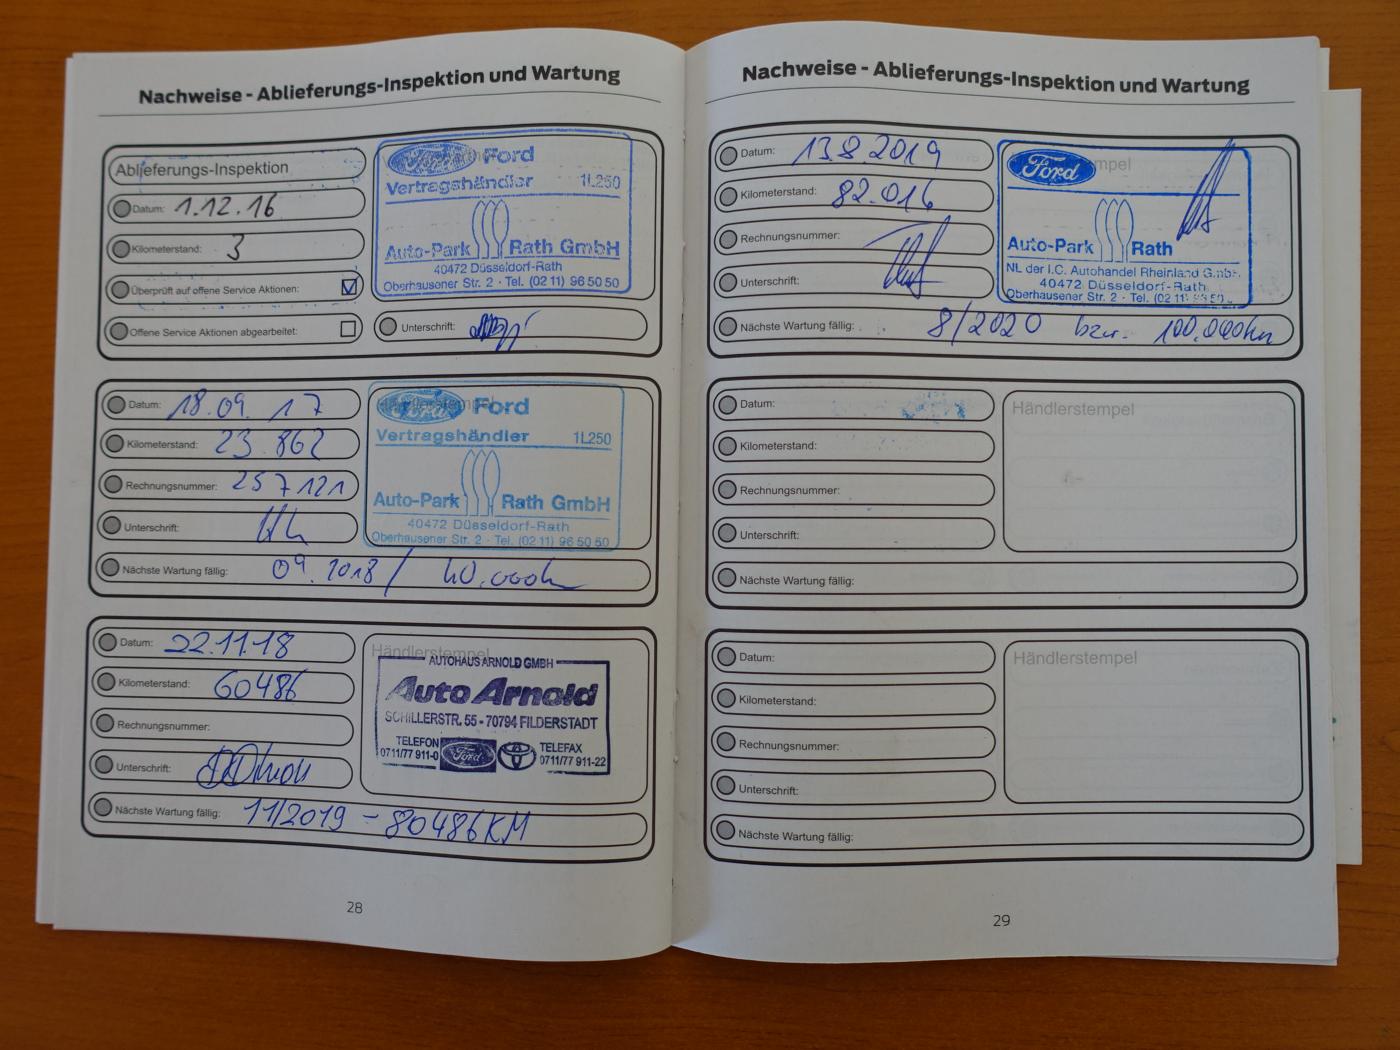 Nachweise - Ablieferungs-Inspektion und Wartung
Ablieferungs-Inspektion
Datum: 1.12.16
Kilometerstand: 3
Überprüft auf offene Service Aktionen:
Offene Service Aktionen abgearbeitet:
Ford Ford
Vertragshändler 1L250
Auto-Park Rath GmbH
40472 Düsseldorf-Rath
Oberhausener Str. 2 · Tel. (02 11) 96 50 50
Unterschrift:
Datum: 18.09.17
Kilometerstand: 23.862
Rechnungsnummer: 257121
Unterschrift:
Händlerstempel
Ford Ford
Vertragshändler 1L250
Auto-Park Rath GmbH
40472 Düsseldorf-Rath
Oberhausener Str. 2 · Tel. (02 11) 96 50 50
Nächste Wartung fällig: 09.2018 / 40.000km
Datum: 22.11.18
Kilometerstand: 60486
Rechnungsnummer:
Unterschrift:
Händlerstempel
AUTOHAUS ARNOLD GMBH
Auto Arnold
SCHILLERSTR. 55 - 70794 FILDERSTADT
TELEFON 0711/77 911-0
Ford
TELEFAX 0711/77 911-22
Nächste Wartung fällig: 11/2019 - 80486KM
28
Nachweise - Ablieferungs-Inspektion und Wartung
Datum: 13.8.2019
Kilometerstand: 82.016
Rechnungsnummer:
Unterschrift:
Ford
Auto-Park Rath
NL der I.C. Autohandel Rheinland GmbH
40472 Düsseldorf-Rath
Oberhausener Str. 2 · Tel. (02 11)
Nächste Wartung fällig: 8/2020 bzw. 100.000km
Datum:
Kilometerstand:
Rechnungsnummer:
Unterschrift:
Händlerstempel
Nächste Wartung fällig:
Datum:
Kilometerstand:
Rechnungsnummer:
Unterschrift:
Händlerstempel
Nächste Wartung fällig:
29